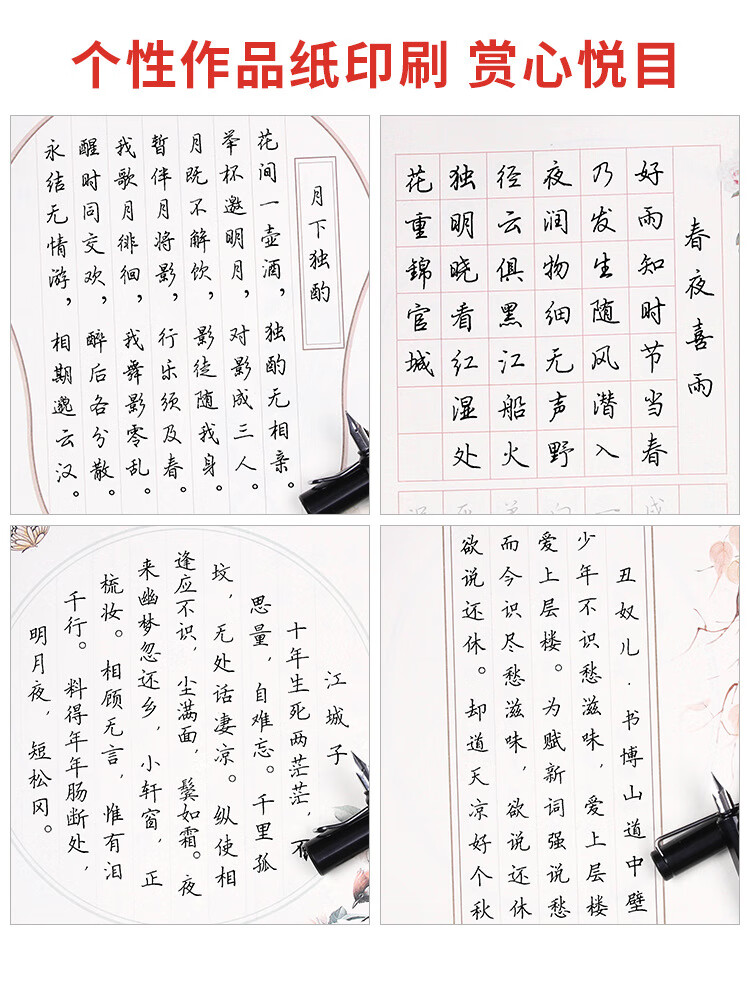 个性作品纸印刷 赏心悦目
月下独酌
花间一壶酒，独酌无相亲。
举杯邀明月，对影成三人。
月既不解饮，影徒随我身。
暫伴月将影，行乐须及春。
我歌月徘徊，我舞影零乱。
醒时同交欢，醉后各分散。
永结无情游，相期邈云汉。
春夜喜雨
好雨知时节当春
乃发生随风潜入
夜润物细无声野
径云俱黑江船火
独明晓看红湿处
花重錦官城
江城子
十年生死两茫茫，不
思量，自难忘。千里孤
坟，无处话凄凉。纵使相
逢应不识，尘满面，鬓如霜。夜
来幽梦忽还乡，小轩窗，正
梳妆。相顾无言，惟有泪
千行。料得年年肠断处，
明月夜，短松冈。
丑奴儿·书博山道中壁
少年不识愁滋味，爱上层楼
爱上层楼。为赋新词强说愁
而今识尽愁滋味，欲说还休
欲说还休。却道天凉好个秋